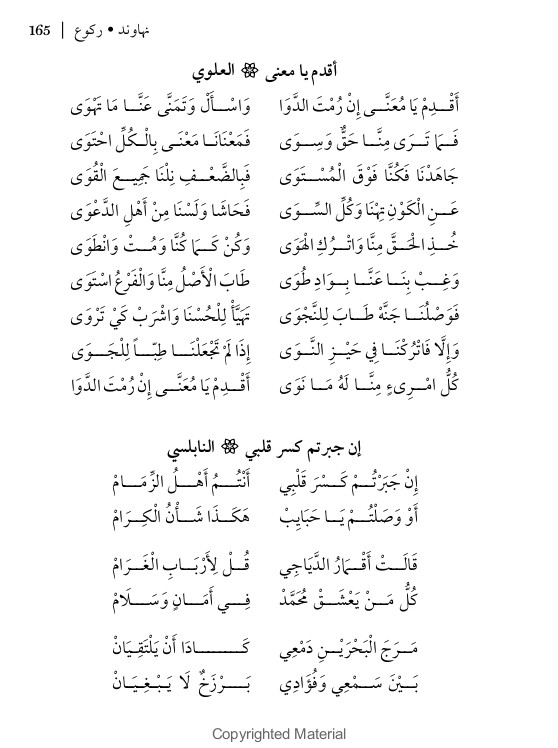 165 | نهاوند • ركوع
أقدم يا معنى ❁ العلوي
أَقْدِمْ يَا مُعَنَّى إِنْ رُمْتَ الدَّوَا وَاسْأَلْ وَتَمَنَّى عَنَّا مَا تَهْوَى
فَمَا تَرَى مِنَّا حَقٌّ وَسِوَى فَمَعْنَانَا مَعْنَى بِالْكُلِّ احْتَوَى
جَاهَدْنَا فَكُنَّا فَوْقَ الْمُسْتَوَى فَبِالضَّعْفِ نِلْنَا جَمِيعَ الْقُوَى
عَنِ الْكَوْنِ تِهْنَا وَكُلِّ السِّوَى فَحَاشَا وَلَسْنَا مِنْ أَهْلِ الدَّعْوَى
خُذِ الْحَقَّ مِنَّا وَاتْرُكِ الْهَوَى وَكُنْ كَمَا كُنَّا وَمُتْ وَانْطَوَى
وَغِبْ بِنَا عَنَّا بِوَادِ طُوَى طَابَ الْأَصْلُ مِنَّا وَالْفَرْعُ اسْتَوَى
فَوَصْلُنَا جَنَّهْ طَابَ لِلنَّجْوَى تَهَيَّأْ لِلْحُسْنَا وَاشْرَبْ كَيْ تَرْوَى
وَإِلَّا فَاتْرُكْنَا فِي حَيْزِ النَّوَى إِذَا لَمْ تَجْعَلْنَا طِبّاً لِلْجَوَى
كُلُّ امْرِىءٍ مِنَّا لَهُ مَا نَوَى أَقْدِمْ يَا مُعَنَّى إِنْ رُمْتَ الدَّوَا
إن جبرتم كسر قلبي ❁ النابلسي
إِنْ جَبَرْتُمْ كَسْرَ قَلْبِي أَنْتُمُ أَهْلُ الزِّمَامْ
أَوْ وَصَلْتُمْ يَا حَبَايِبْ هَكَذَا شَأْنُ الْكِرَامْ
قَالَتْ أَقْمَارُ الدَّيَاجِي قُلْ لِأَرْبَابِ الْغَرَامْ
كُلُّ مَنْ يَعْشَقْ مُحَمَّدْ فِي أَمَانٍ وَسَلَامْ
مَرَجَ الْبَحْرَيْنِ دَمْعِي كَادَا أَنْ يَلْتَقِيَانْ
بَيْنَ سَمْعِي وَفُؤَادِي بَرْزَخٌ لَا يَبْغِيَانْ
Copyrighted Material